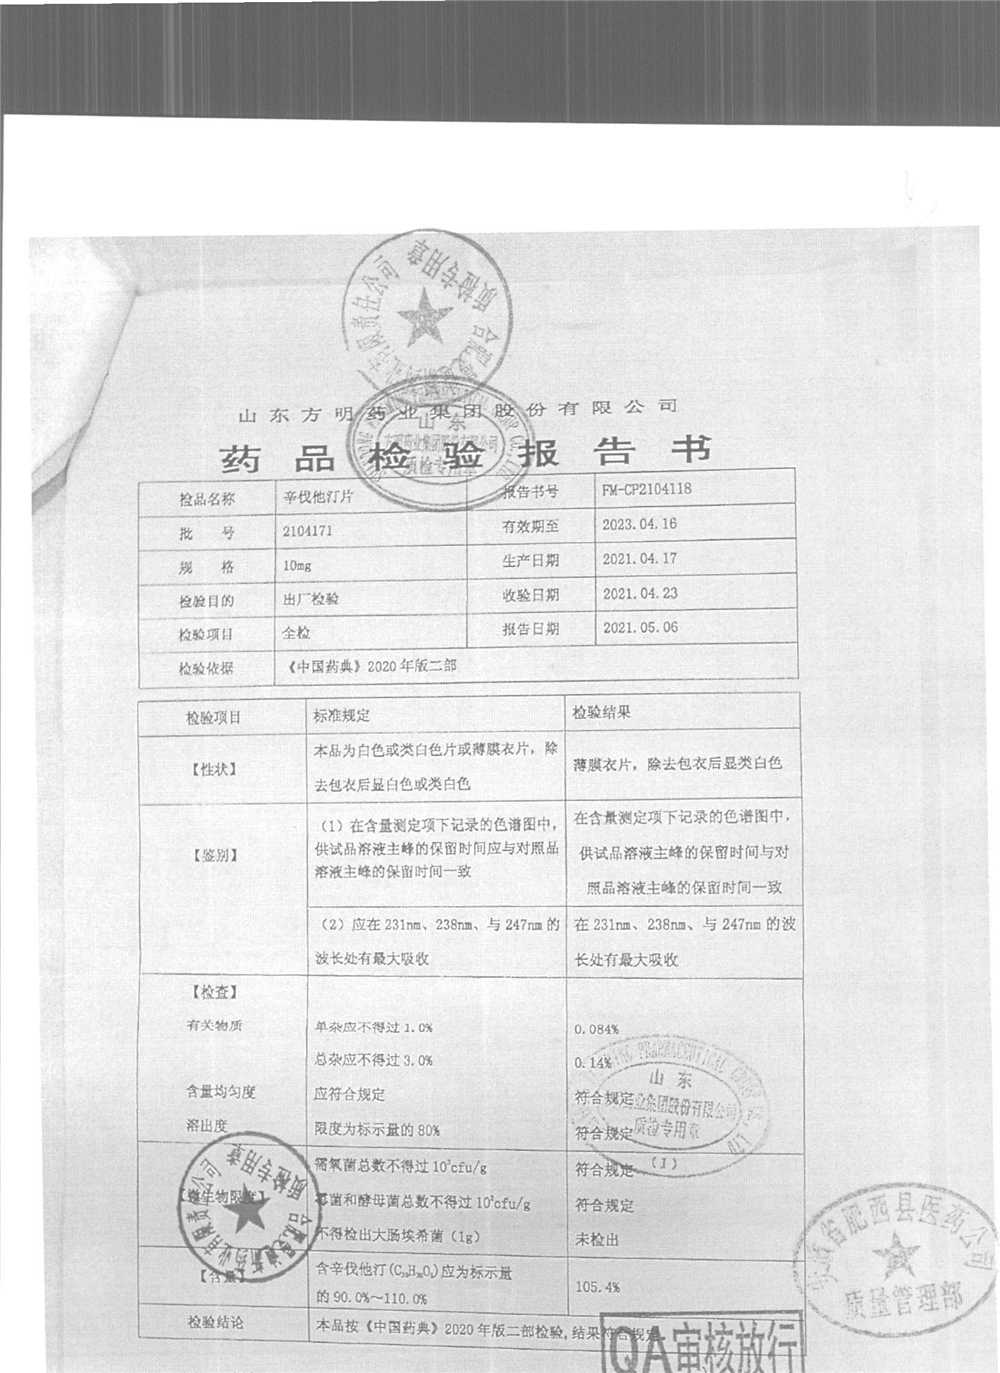 山东方明药业集团股份有限公司
药品检验报告书
检品名称 辛伐他汀片 报告书号 FM-CP2104118
批 号 2104171 有效期至 2023.04.16
规 格 10mg 生产日期 2021.04.17
检验目的 出厂检验 收验日期 2021.04.23
检验项目 全检 报告日期 2021.05.06
检验依据 《中国药典》2020年版二部
检验项目 标准规定 检验结果
【性状】 本品为白色或类白色片或薄膜衣片，除
去包衣后显白色或类白色
薄膜衣片，除去包衣后显类白色
【鉴别】 （1）在含量测定项下记录的色谱图中，
供试品溶液主峰的保留时间应与对照品
溶液主峰的保留时间一致
在含量测定项下记录的色谱图中，
供试品溶液主峰的保留时间与对
照品溶液主峰的保留时间一致
（2）应在231nm、238nm、与247nm的
波长处有最大吸收
在231nm、238nm、与247nm的波
长处有最大吸收
【检查】
有关物质 单杂应不得过1.0% 0.084%
总杂应不得过3.0% 0.14%
含量均匀度 应符合规定 符合规定
溶出度 限度为标示量的80% 符合规定
【微生物限度】 需氧菌总数不得过10³cfu/g 符合规定
霉菌和酵母菌总数不得过10²cfu/g 符合规定
不得检出大肠埃希菌（1g） 未检出
【含量】 含辛伐他汀(C₂₅H₃₈O₅)应为标示量
的90.0%～110.0%
105.4%
检验结论 本品按《中国药典》2020年版二部检验,结果符合规定
质检专用章
有限责任公司
山东
方明药业集团股份有限公司
质检专用章
山东
药业集团股份有限公司
质检专用章
(1)
质检专用章
安徽省肥西县医药公司
质量管理部
QA审核放行